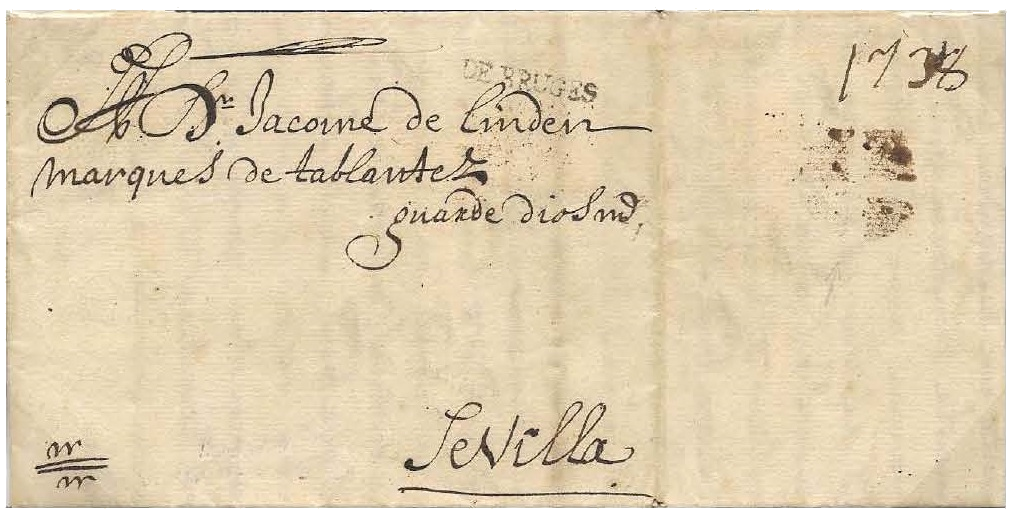 1738
DE BRUGES
Al Sr. Jacome de Linden
marques de tablantez
guarde dios md,
Sevilla